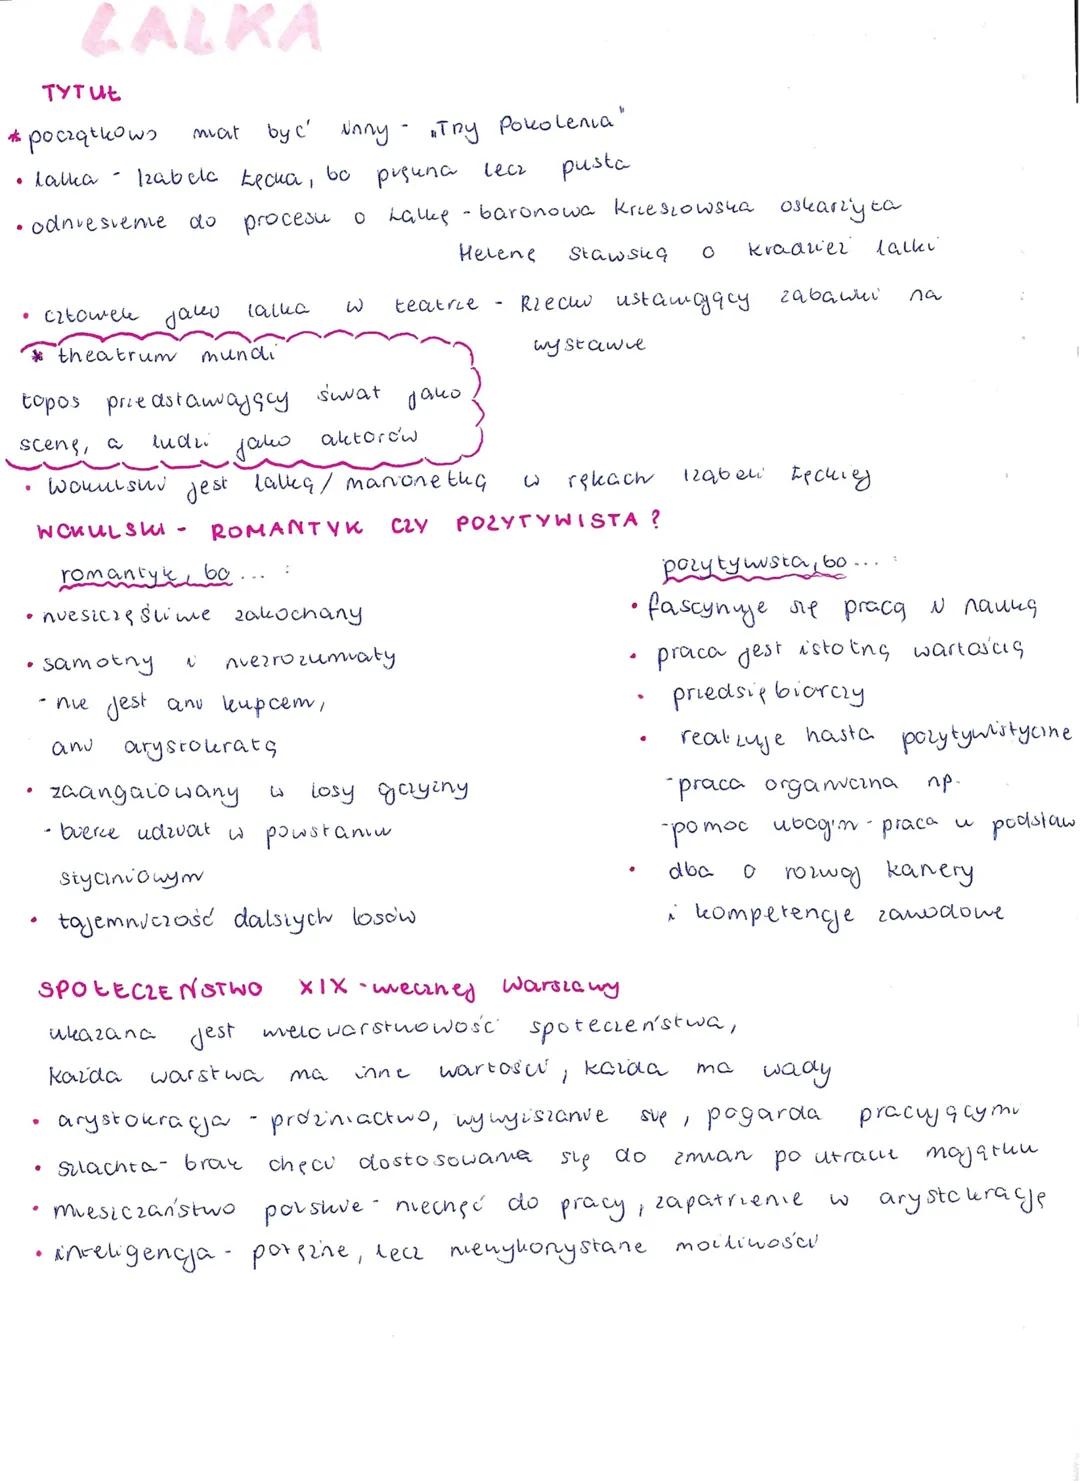 LALKA
TYTUŁ
* początkowo miał być inny - „Trzy Pokolenia"
• lalka - Izabela Łęcka, bo piękna lecz pusta
• odniesienie do procesu o Lalkę - baronowa Krzeszowska oskarżyła
Helenę Stawską o kradzież lalki
• człowiek jako lalka w teatrze - Rzecki ustawiający zabawki na
wystawie
* theatrum mundi
topos przedstawiający świat jako
scenę, a ludzi jako aktorów
• Wokulski jest lalką / marionetką w rękach Izabeli Łęckiej
WOKULSKI - ROMANTYK CZY POZYTYWISTA?
romantyk, bo ... :
• nieszczęśliwie zakochany
• samotny i niezrozumiały
- nie jest ani kupcem,
ani arystokratą
• zaangażowany w losy ojczyzny
- bierze udział w powstaniu
styczniowym
• tajemniczość dalszych losów
pozytywista, bo ... :
• fascynuje się pracą i nauką
• praca jest istotną wartością
• przedsiębiorczy
• realizuje hasła pozytywistyczne
- praca organiczna np.
- pomoc ubogim - praca u podstaw
• dba o rozwój kariery
i kompetencje zawodowe
SPOŁECZEŃSTWO XIX-wiecznej Warszawy
ukazana jest wielowarstwowość społeczeństwa,
każda warstwa ma inne wartości, każda ma wady
• arystokracja - próżniactwo, wywyższanie się, pogarda pracującymi
• szlachta - brak chęci dostosowania się do zmian po utracie majątku
• mieszczaństwo polskie - niechęć do pracy, zapatrzenie w arystokrację
• inteligencja - potężne, lecz niewykorzystane możliwości